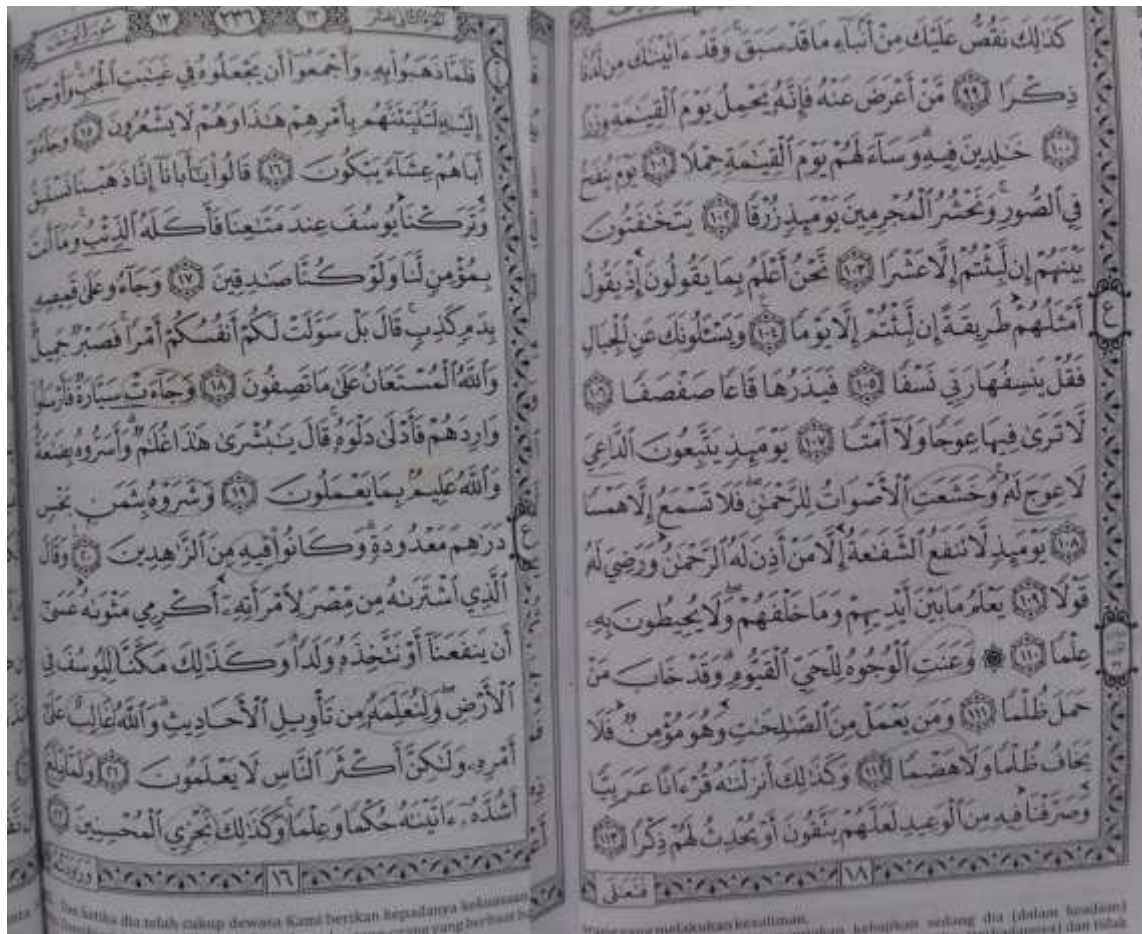 كَذَٰلِكَ نَقُصُّ عَلَيْكَ مِنْ أَنۢبَآءِ مَا قَدْ سَبَقَ ۚ وَقَدْ ءَاتَيْنَٰكَ مِن لَّدُنَّا
ذِكْرًا ٩٩ مَّنْ أَعْرَضَ عَنْهُ فَإِنَّهُۥ يَحْمِلُ يَوْمَ ٱلْقِيَٰمَةِ وِزْرًا
١٠٠ خَٰلِدِينَ فِيهِ ۖ وَسَآءَ لَهُمْ يَوْمَ ٱلْقِيَٰمَةِ حِمْلًا ١٠١ يَوْمَ يُنفَخُ
فِى ٱلصُّورِ ۚ وَنَحْشُرُ ٱلْمُجْرِمِينَ يَوْمَئِذٍ زُرْقًا ١٠٢ يَتَخَٰفَتُونَ
بَيْنَهُمْ إِن لَّبِثْتُمْ إِلَّا عَشْرًا ١٠٣ نَّحْنُ أَعْلَمُ بِمَا يَقُولُونَ إِذْ يَقُولُ
أَمْثَلُهُمْ طَرِيقَةً إِن لَّبِثْتُمْ إِلَّا يَوْمًا ١٠٤ وَيَسْـَٔلُونَكَ عَنِ ٱلْجِبَالِ
فَقُلْ يَنسِفُهَا رَبِّى نَسْفًا ١٠٥ فَيَذَرُهَا قَاعًا صَفْصَفًا ١٠٦
لَّا تَرَىٰ فِيهَا عِوَجًا وَلَآ أَمْتًا ١٠٧ يَوْمَئِذٍ يَتَّبِعُونَ ٱلدَّاعِىَ
لَا عِوَجَ لَهُۥ ۖ وَخَشَعَتِ ٱلْأَصْوَاتُ لِلرَّحْمَٰنِ فَلَا تَسْمَعُ إِلَّا هَمْسًا
١٠٨ يَوْمَئِذٍ لَّا تَنفَعُ ٱلشَّفَٰعَةُ إِلَّا مَنْ أَذِنَ لَهُ ٱلرَّحْمَٰنُ وَرَضِىَ لَهُۥ
قَوْلًا ١٠٩ يَعْلَمُ مَا بَيْنَ أَيْدِيهِمْ وَمَا خَلْفَهُمْ وَلَا يُحِيطُونَ بِهِۦ
عِلْمًا ١١٠ ۞ وَعَنَتِ ٱلْوُجُوهُ لِلْحَىِّ ٱلْقَيُّومِ ۖ وَقَدْ خَابَ مَنْ
حَمَلَ ظُلْمًا ١١١ وَمَن يَعْمَلْ مِنَ ٱلصَّٰلِحَٰتِ وَهُوَ مُؤْمِنٌ فَلَا
يَخَافُ ظُلْمًا وَلَا هَضْمًا ١١٢ وَكَذَٰلِكَ أَنزَلْنَٰهُ قُرْءَانًا عَرَبِيًّا
وَصَرَّفْنَا فِيهِ مِنَ ٱلْوَعِيدِ لَعَلَّهُمْ يَتَّقُونَ أَوْ يُحْدِثُ لَهُمْ ذِكْرًا ١١٣
١٨
فَتَعَٰلَى
orang yang melakukan kezaliman.
kebajikan sedang dia (dalam keadaan)
dan tidak
١٢ ٢٣٦ ١٢
فَلَمَّا ذَهَبُوا۟ بِهِۦ وَأَجْمَعُوٓا۟ أَن يَجْعَلُوهُ فِى غَيَٰبَتِ ٱلْجُبِّ ۚ وَأَوْحَيْنَآ
إِلَيْهِ لَتُنَبِّئَنَّهُم بِأَمْرِهِمْ هَٰذَا وَهُمْ لَا يَشْعُرُونَ ١٥ وَجَآءُو
أَبَاهُمْ عِشَآءً يَبْكُونَ ١٦ قَالُوا۟ يَٰٓأَبَانَآ إِنَّا ذَهَبْنَا نَسْتَبِقُ
وَتَرَكْنَا يُوسُفَ عِندَ مَتَٰعِنَا فَأَكَلَهُ ٱلذِّئْبُ ۖ وَمَآ أَنتَ
بِمُؤْمِنٍ لَّنَا وَلَوْ كُنَّا صَٰدِقِينَ ١٧ وَجَآءُو عَلَىٰ قَمِيصِهِۦ
بِدَمٍ كَذِبٍ ۚ قَالَ بَلْ سَوَّلَتْ لَكُمْ أَنفُسُكُمْ أَمْرًا ۖ فَصَبْرٌ جَمِيلٌ ۖ
وَٱللَّهُ ٱلْمُسْتَعَانُ عَلَىٰ مَا تَصِفُونَ ١٨ وَجَآءَتْ سَيَّارَةٌ فَأَرْسَلُوا۟
وَارِدَهُمْ فَأَدْلَىٰ دَلْوَهُۥ ۖ قَالَ يَٰبُشْرَىٰ هَٰذَا غُلَٰمٌ ۚ وَأَسَرُّوهُ بِضَٰعَةً ۚ
وَٱللَّهُ عَلِيمٌۢ بِمَا يَعْمَلُونَ ١٩ وَشَرَوْهُ بِثَمَنٍۭ بَخْسٍ
دَرَٰهِمَ مَعْدُودَةٍ وَكَانُوا۟ فِيهِ مِنَ ٱلزَّٰهِدِينَ ٢٠ وَقَالَ
ٱلَّذِى ٱشْتَرَىٰهُ مِن مِّصْرَ لِٱمْرَأَتِهِۦٓ أَكْرِمِى مَثْوَىٰهُ عَسَىٰٓ
أَن يَنفَعَنَآ أَوْ نَتَّخِذَهُۥ وَلَدًا ۚ وَكَذَٰلِكَ مَكَّنَّا لِيُوسُفَ فِى
ٱلْأَرْضِ وَلِنُعَلِّمَهُۥ مِن تَأْوِيلِ ٱلْأَحَادِيثِ ۚ وَٱللَّهُ غَالِبٌ عَلَىٰٓ
أَمْرِهِۦ وَلَٰكِنَّ أَكْثَرَ ٱلنَّاسِ لَا يَعْلَمُونَ ٢١ وَلَمَّا بَلَغَ
أَشُدَّهُۥٓ ءَاتَيْنَٰهُ حُكْمًا وَعِلْمًا ۚ وَكَذَٰلِكَ نَجْزِى ٱلْمُحْسِنِينَ ٢٢
١٦
Dan ketika dia telah cukup dewasa Kami berikan kepadanya kekuasaan
yang berbuat